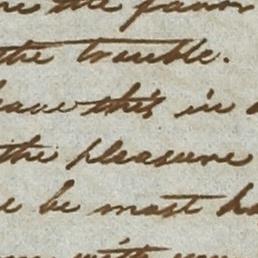 the favor
the trouble.
leave this in
the pleasure
be most
with you